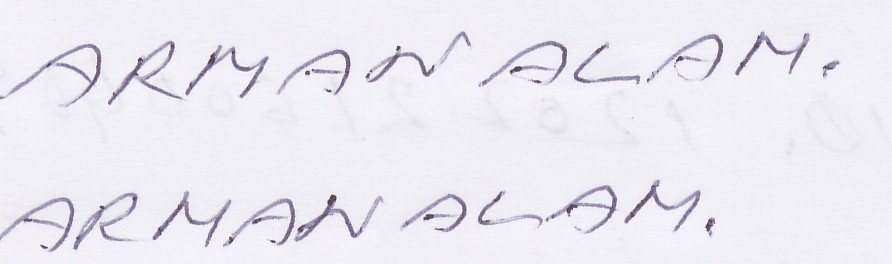 ARMAN ALAM.
ARMAN ALAM.